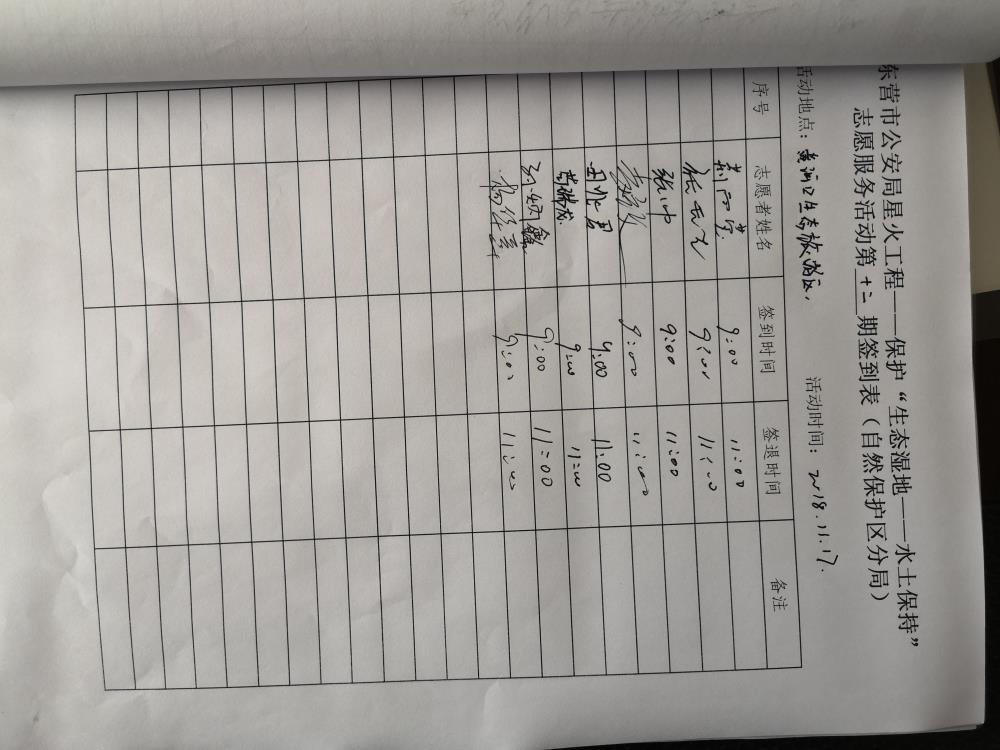 东营市公安局星火工程——保护“生态湿地——水土保持”
志愿服务活动第十二期签到表（自然保护区分局）
活动地点：黄河口生态旅游区， 活动时间：2018.11.17.
序号 志愿者姓名 签到时间 签退时间 备注
9:00 11:00
9:00 11:00
张冲 9:00 11:00
9:00 11:00
9:00 11:00
9:00 11:00
9:00 11:00
9:00 11:00